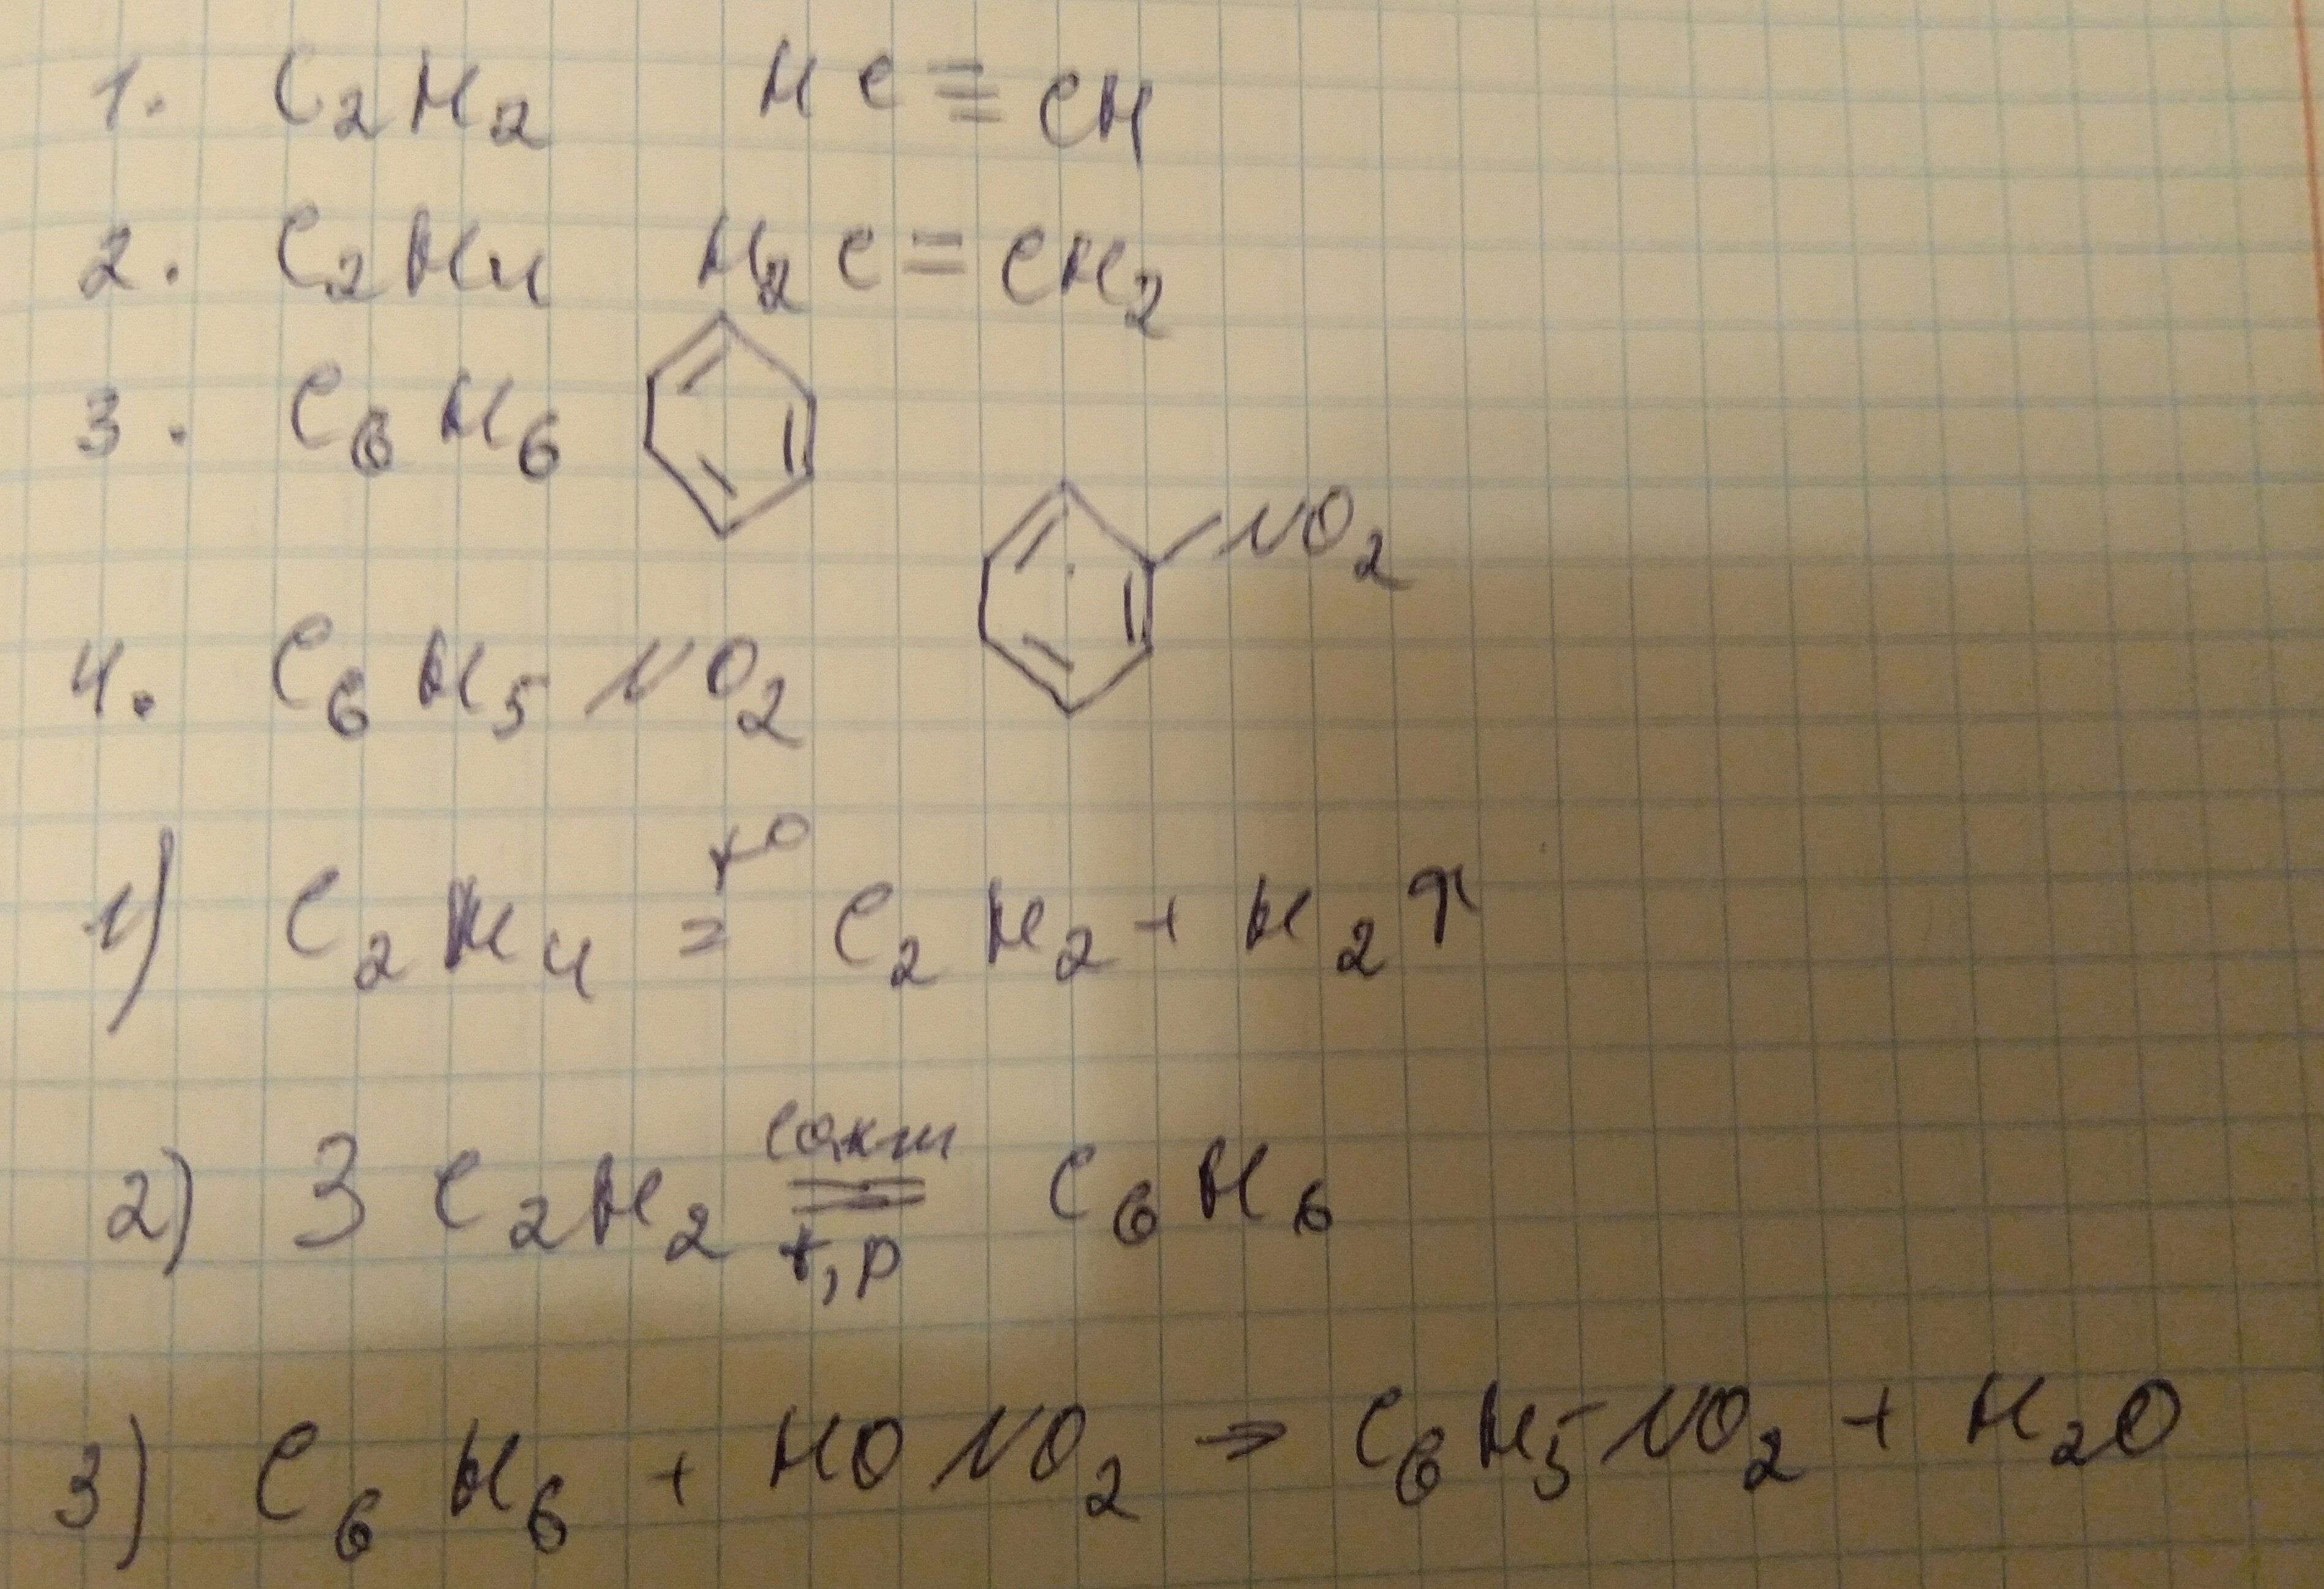 1. C₂H₂ HC≡CH
2. C₂H₄ H₂C=CH₂
3. C₆H₆
NO₂
4. C₆H₅NO₂
t⁰
1) C₂H₄ = C₂H₂ + H₂↑
Cакт
2) 3C₂H₂ = C₆H₆
t, p
3) C₆H₆ + HONO₂ → C₆H₅NO₂ + H₂O